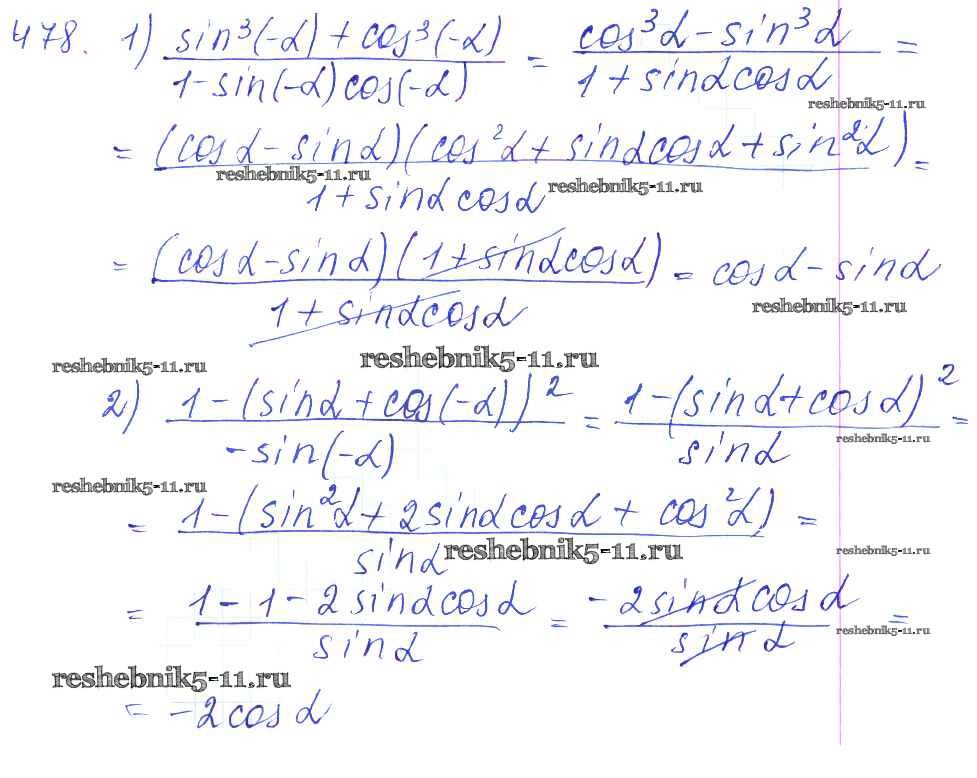 478. 1) (sin³(-α) + cos³(-α))/(1 - sin(-α)cos(-α)) = (cos³α - sin³α)/(1 + sinαcosα) =
reshebnik5-11.ru
= ((cosα - sinα)(cos²α + sinαcosα + sin²α))/(1 + sinαcosα) =
reshebnik5-11.ru reshebnik5-11.ru
= ((cosα - sinα)(1 + sinαcosα))/(1 + sinαcosα) = cosα - sinα
reshebnik5-11.ru
reshebnik5-11.ru reshebnik5-11.ru
2) (1 - (sinα + cos(-α))²)/(-sin(-α)) = (1 - (sinα + cosα)²)/(sinα) =
reshebnik5-11.ru
reshebnik5-11.ru
= (1 - (sin²α + 2sinαcosα + cos²α))/(sinα) =
reshebnik5-11.ru reshebnik5-11.ru
= (1 - 1 - 2sinαcosα)/(sinα) = (-2sinαcosα)/(sinα) =
reshebnik5-11.ru
reshebnik5-11.ru
= -2cosα